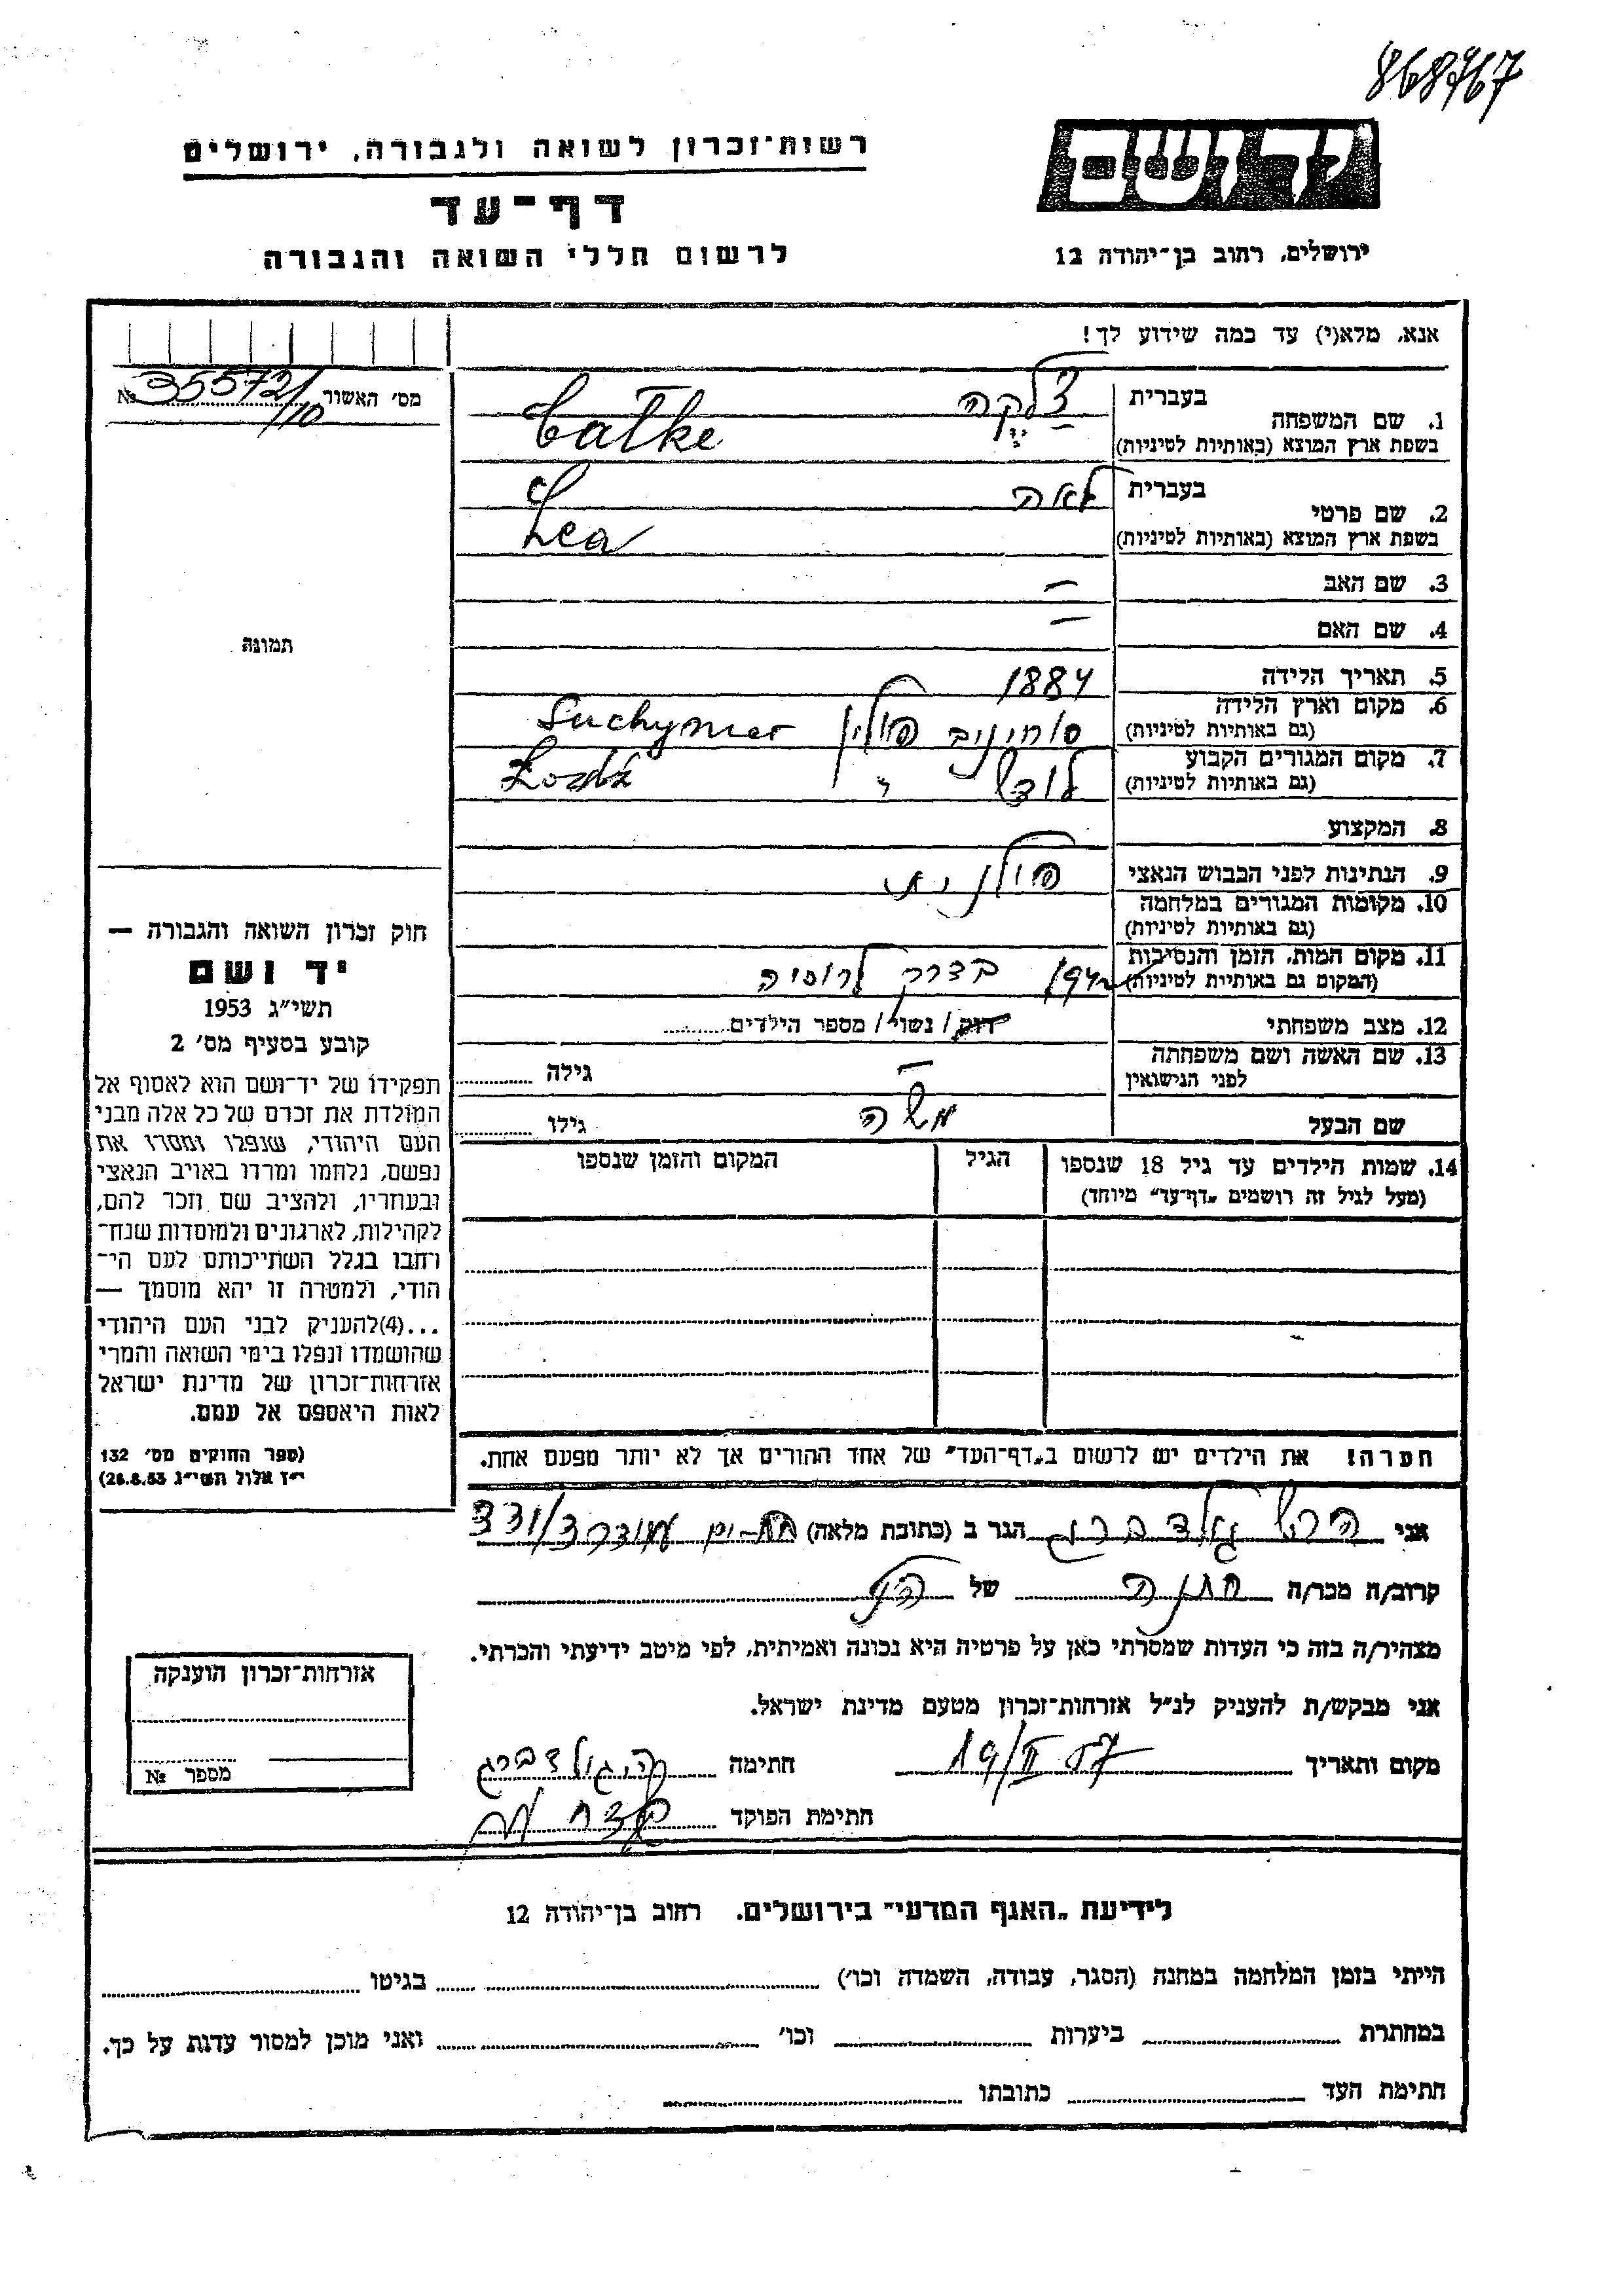 868767
יד ושם
ירושלים, רחוב בן־יהודה 12
רשות־זכרון לשואה ולגבורה, ירושלים
דף־עד
לרשום חללי השואה והגבורה
אנא, מלא(י) עד כמה שידוע לך!
מס׳ האשור 355721/10 №
תמונה
1. שם המשפחה
בעברית צ'לקה
בשפת ארץ המוצא (באותיות לטיניות) Całke
2. שם פרטי
בעברית לאה
בשפת ארץ המוצא (באותיות לטיניות) Lea
3. שם האב –
4. שם האם –
5. תאריך הלידה 1884
6. מקום וארץ הלידה
(גם באותיות לטיניות) פולין
7. מקום המגורים הקבוע
(גם באותיות לטיניות) לודז' "
8. המקצוע
9. הנתינות לפני הכבוש הנאצי פולנית
10. מקומות המגורים במלחמה
(גם באותיות לטיניות)
11. מקום המות, הזמן והנסיבות
(המקום גם באותיות לטיניות) בדרך לרוסיה
12. מצב משפחתי רוק / נשוי / מספר הילדים
13. שם האשה ושם משפחתה
לפני הנישואין – גילה
שם הבעל משה גילו
14. שמות הילדים עד גיל 18 שנספו הגיל המקום והזמן שנספו
(מעל לגיל זה רושמים „דף־עד״ מיוחד)
הערה! את הילדים יש לרשום ב„דף־העד״ של אחד ההורים אך לא יותר מפעם אחת.
חוק זכרון השואה והגבורה —
יד ושם
תשי״ג 1953
קובע בסעיף מס׳ 2
תפקידו של יד־ושם הוא לאסוף אל
המולדת את זכרם של כל אלה מבני
העם היהודי, שנפלו ומסרו את
נפשם, נלחמו ומרדו באויב הנאצי
ובעוזריו, ולהציב שם וזכר להם,
לקהילות, לארגונים ולמוסדות שנח־
רובו בגלל השתייכותם לעם הי־
הודי, ולמטרה זו יהא מוסמך —
...(4)להעניק לבני העם היהודי
שהושמדו ונפלו בימי השואה והמרי
אזרחות־זכרון של מדינת ישראל
לאות היאספם אל עמם.
(ספר החוקים מס׳ 132
י״ז אלול תשי״ג 28.8.53)
אני גולדברג הגר ב (כתובת מלאה)
קרוב/ה מכר/ה של
מצהיר/ה בזה כי העדות שמסרתי כאן על פרטיה היא נכונה ואמיתית, לפי מיטב ידיעתי והכרתי.
אני מבקש/ת להעניק לנ״ל אזרחות־זכרון מטעם מדינת ישראל.
מקום ותאריך 19/II 57 חתימה גולדברג
חתימת הפוקד
אזרחות־זכרון הוענקה
מספר №
לידיעת „האגף המדעי״ בירושלים. רחוב בן־יהודה 12
הייתי בזמן המלחמה במחנה (הסגר, עבודה, השמדה וכו׳) בגיטו
במחתרת ביערות וכו׳ ואני מוכן למסור עדות על כך.
חתימת העד כתובתו